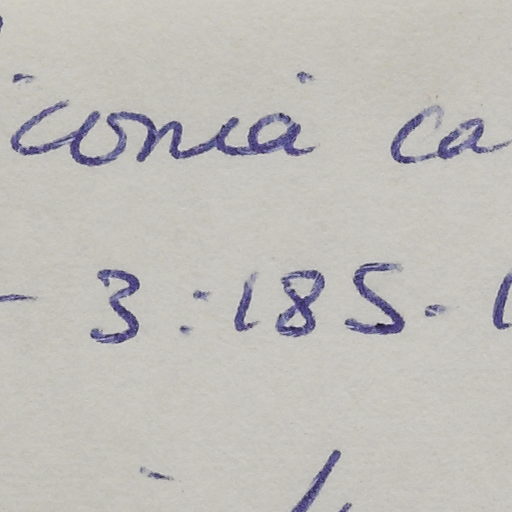 iconia ca
- 3:185.1